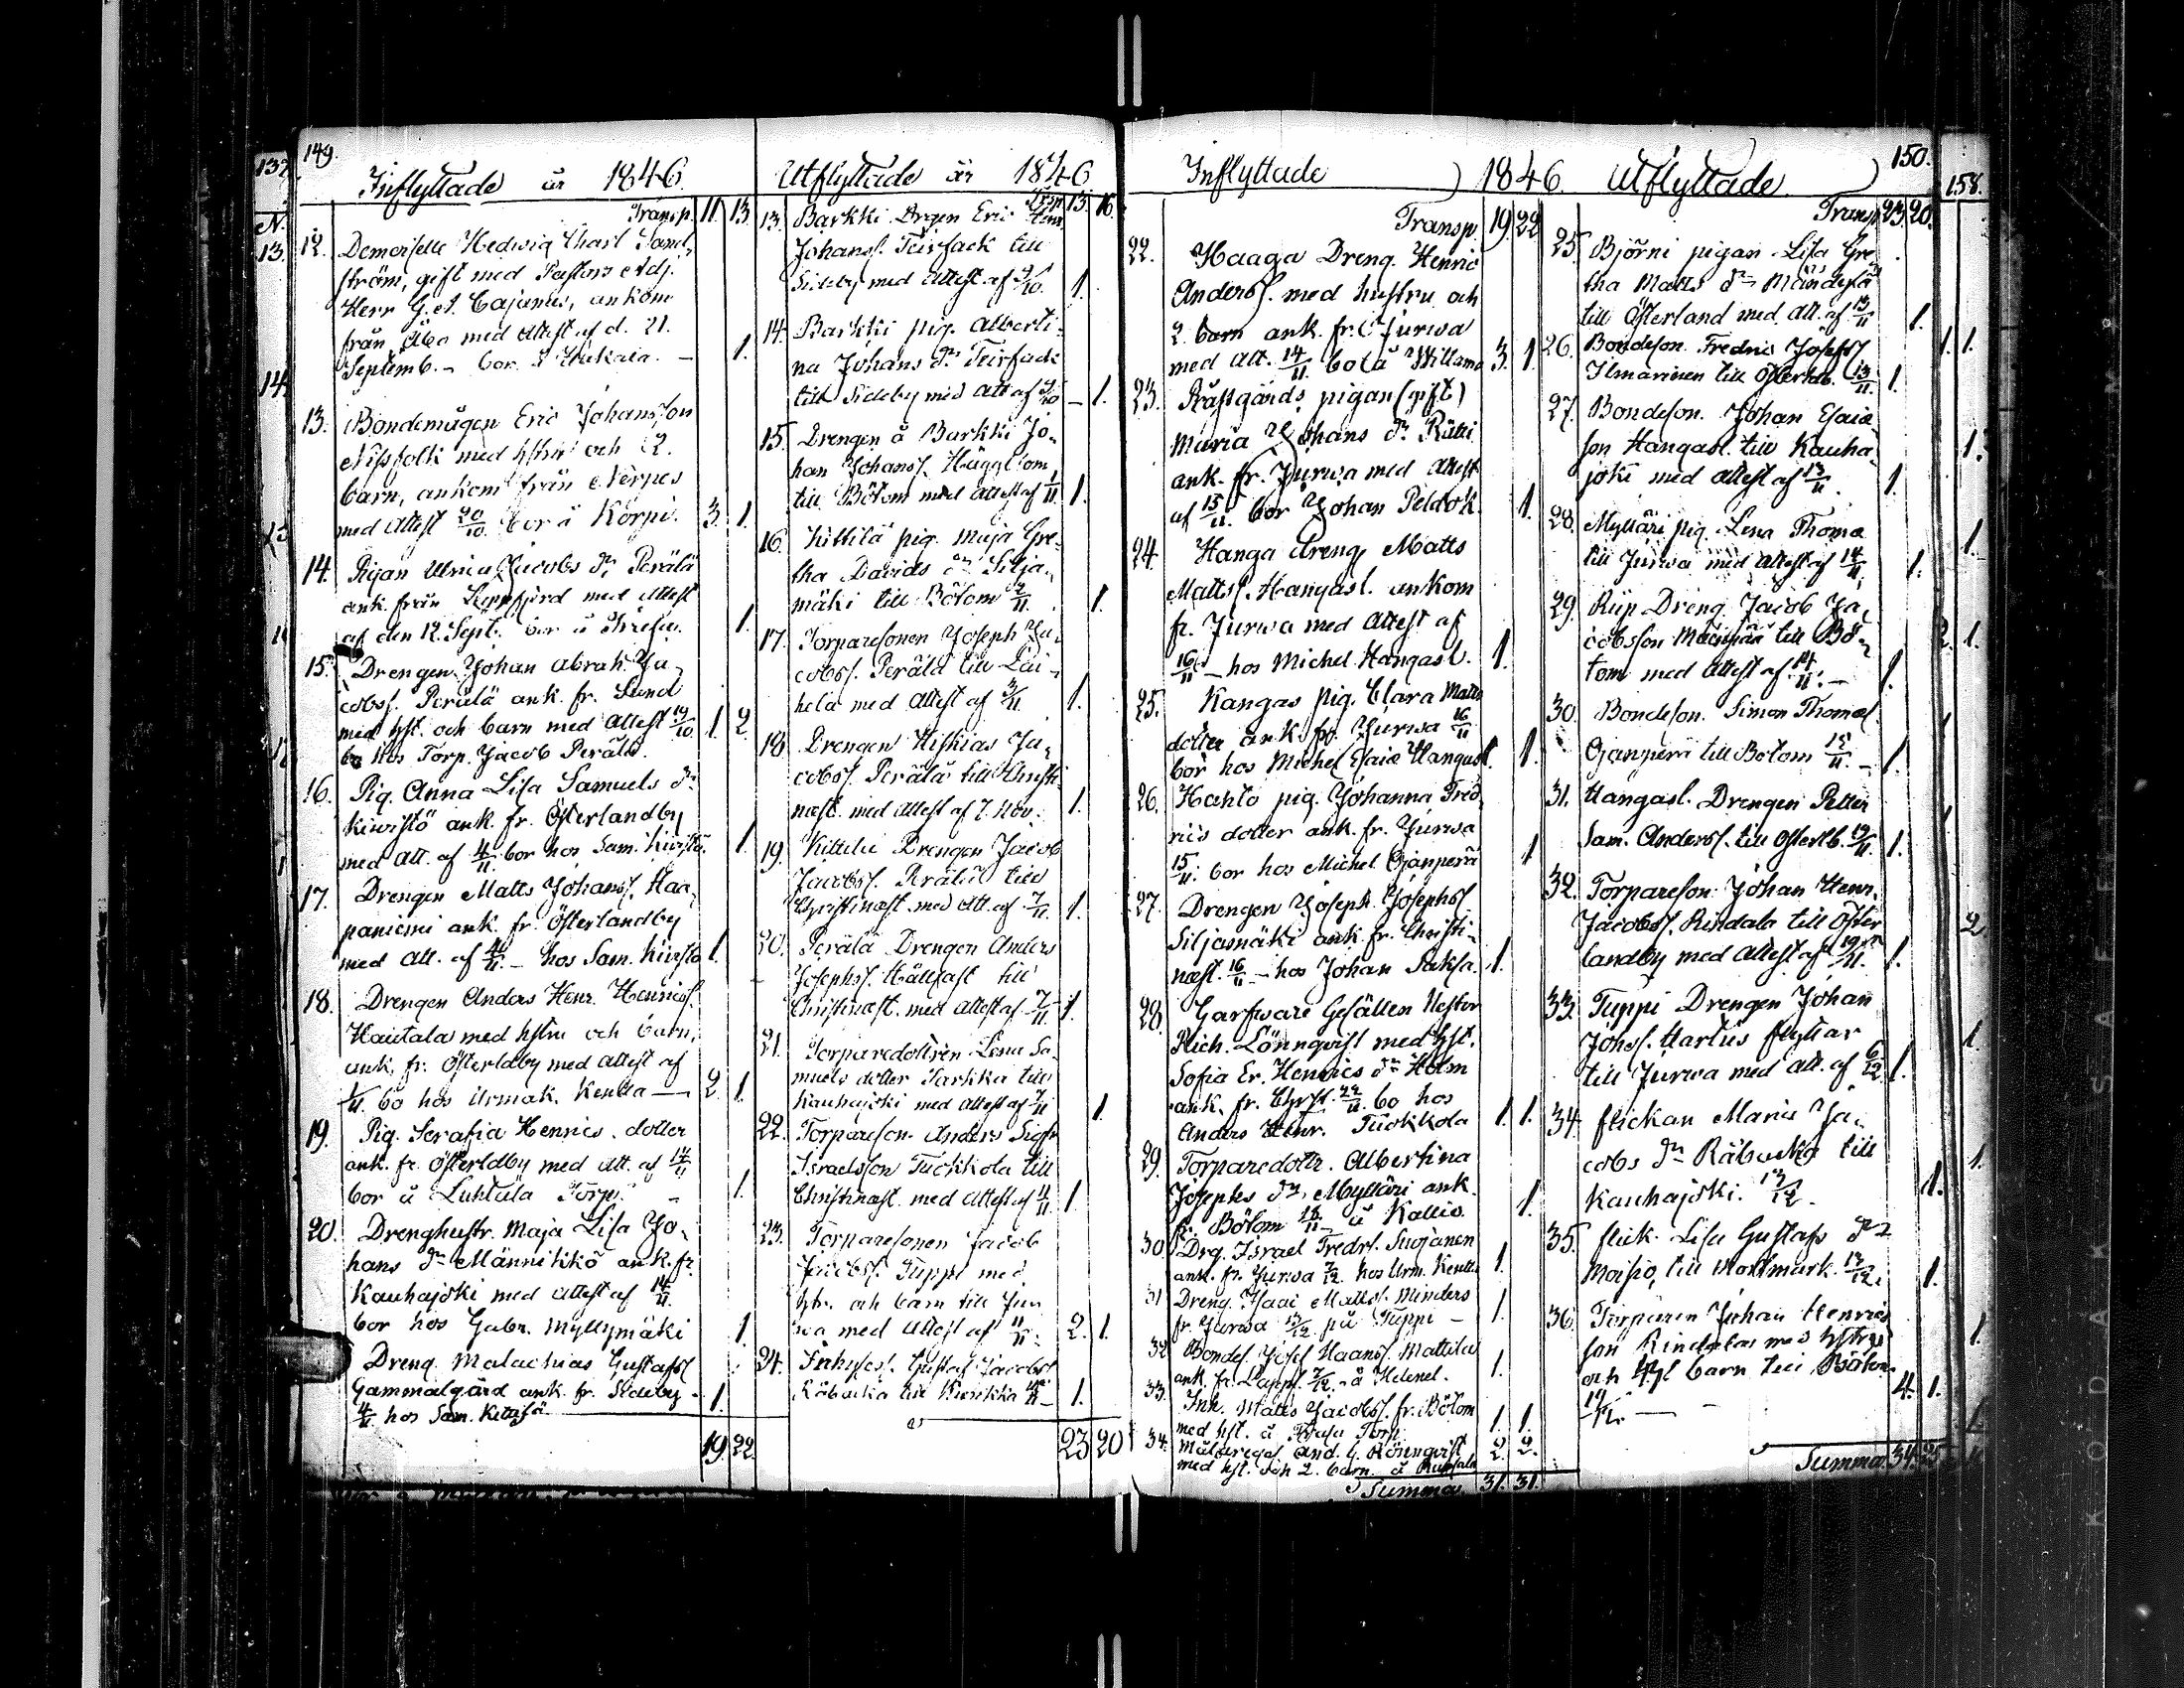 149.
Inflyttade år 1846.
Transp. 11. 13.
12. Demoiselle Hedwig Charl. Sand-
ström, gift med Pastors Adj.
Herr G. A. Cajanus, ankom
från Åbo med Attest af d. 21.
Septemb. - bor å - 1.
13. Bondemågen Eric Johansson
Nissfolk med hstru och 2.
barn, ankom från Nerpes
med Attest 20/10. bor å Korpi. 3. 1.
14. Pigan Ulrica Jacobs dr Perälä
ank. från Lappfjerd med Attest
af den 12. Sept. bor å 1.
15. Drengen Johan Abrah. Ja-
cobss. Perälä ank. fr. Lund
med hst. och barn med Attest 19/10 1. 2.
bo hos Torp. Jacob Perälä.
16. Pig. Anna Lisa Samuels dr
Kiwistö ank. fr. Österlandby
med Att. af 4/11. bor hos Sam. Kiwistö. 1.
17. Drengen Matts Johanss. Haa-
paniemi ank. fr. Österlandby
med Att. af 4/11. - hos Sam. Kiwistö 1.
18. Drengen Anders Henr. Henricss.
Hautala med hstru och barn,
ank. fr. Österldby med Attest af
1/11. bo hos Urmak. Kentta - 2. 1.
19. Pig. Serafia Henrics dotter
ank. fr. Österldby med Att. af 14/11
bor å Luhtala Torp. - 1.
20. Drenghustr. Maja Lisa Jo-
hans dr Männikkö ank. fr.
Kauhajoki med Attest af 14/11.
bor hos Gabr. Myllymäki 1.
Dreng. Malachias Gustafss.
Gammalgård ank. fr. Sideby - 1.
4/11. hos Sam. Kittilä
19. 22.
Utflyttade år 1846.
Trsp. 13. 16.
13. Barkki Drgen Eric Henr.
Johanss. Teirfack till
Sideby med Attest af 9/10. 1.
14. Barkki pig. Alberti-
na Johans dr Teirfack
till Sideby med Att af 9/10 - 1.
15. Drengen å Barkki Jo-
han Johanss. Hägglom
till Bötom med Attest af 1/11. 1.
16. Kittilä pig. Maja Gre-
tha Davids dr Silja-
mäki till Bötom 2/11. 1.
17. Torparesonen Joseph Ja-
cobss. Perälä till Lai-
hela med Attest af 3/11. 1.
18. Drengen Hiskias Ja-
cobss. Perälä till Christi-
næst. med Attest af 7. Nov. 1.
19. Kittilä Drengen Jacob
Jacobss. Perälä till
Christinæst. med Att. af 7/11. 1.
20. Perälä Drengen Anders
Josephss. Hällfast till
Christinæst. med Attest af 7/11. 1.
21. Torparedottren Lena Sa-
muels dotter Sarkka till
Kauhajoki med Attest af 7/11 1.
22. Torpareson Anders Sigfr.
Israelsson Tuokkola till
Christinæst. med Attest af 11/11 1.
23. Torparesonen Jacob
Jacobss. Tuppi med
hstr. och barn till Jur-
wa med Attest af 11/11. 2. 1.
24. Inhyses. Gustaf Jacobss.
Räbacka till 1.
23 20
Inflyttade 1846.
Transp. 19. 22
22. Haaga Dreng. Henric
Anderss. med hustru och
2. barn ank. fr. Jurwa
med Att. 14/11. bo å Willamo 3. 1
23. Pråstgårds pigan (gift)
Maria Johans dr Rütti
ank. fr. Jurwa med Attest
af 15/11. bor Johan Peldok. 1.
24. Hanga dreng Matts
Mattss. Hangasl. ankom
fr. Jurwa med Attest af
16/11 - hos Michel Hangasl. 1.
25. Kangas pig. Clara Matts
dotter ank. fr. Jurwa 16/11
bor hos Michel Esaiæ Hangasl. 1.
26. Hahto pig. Johanna Fred-
rics dotter ank. fr. Jurwa
15/11. bor hos Michel Ojanperä 1
27. Drengen Joseph Josephss.
Siljamäki ank. fr. Christi-
næst. 16/11 - hos Johan Saksa. 1.
28. Garfware Gesällen Nestor
Mich. Lönnqvist med hst.
Sofia Er. Henrics dr Holm
ank. fr. Chrst. 22/11. bo hos
Anders Henr. Tuokkola 1. 1.
29. Torparedottr. Albertina
Josephs dr Mylläri ank.
fr. Bötom 18/11 - å Kallio 1.
30. Drg. Israel Fredrs. Suojanen
ank. fr. Jurwa 7/12. hos Urm. Kentta 1.
31 Dreng. Isaac Mattss. Minders
fr. Jurwa 13/12. på Tuppi - 1.
32 Bondes. Josef Haanss. Mattila
ank. fr. Lappf. 7/12. - å 1.
33. Inh. Matts Jacobss. fr. Bötom
med hst. å Torp 1. 1.
34. And. G. Rönnqvist 2. 2.
med hst. och 2. barn å
Summa 31. 31.
150.
Utflyttade
Transp. 23. 20.
25. Björni pigan Lisa Gre-
tha Matts dr
till Österland med Att. af 13/11 1.
26. Bondeson Fredric Josefss.
Ilmarinen till Österldb. 13/11. 1.
27. Bondeson. Johan Esaiæ
son Hangasl. till Kauha-
joki med Attest af 13/11. 1.
28. Mylläri pig. Lena Thomæ
till Jurwa med Attest af 14/11. 1.
29. Riip Dreng. Jacob Ja-
cobsson till Bö-
tom med Attest af 14/11. - 1.
30. Bondeson. Simon Thomæs.
Ojanperä till Botom 15/11. - 1.
31. Hangasl. Drengen Petter
Sam. Anderss. till Österlb. 19/11. 1.
32. Torpareson Johan Henr.
Jacobss. Rindala till Öster-
landby med Attest af 19/11. 1.
33. Tuppi Drengen Johan
Johss. Martus flyttar
till Jurwa med Att. af 6/12. 1.
34. flickan Maria Ja-
cobs dr Räbacka till
Kauhajoki. 13/12. 1.
35. flick. Lisa Gustafs dr
Moisio, till 13/12. 1.
36. Torparen Johan Henrics
son Rindalas med hstru
och 4 barn till Bötom 4. 1.
Summa 34. 25
158.